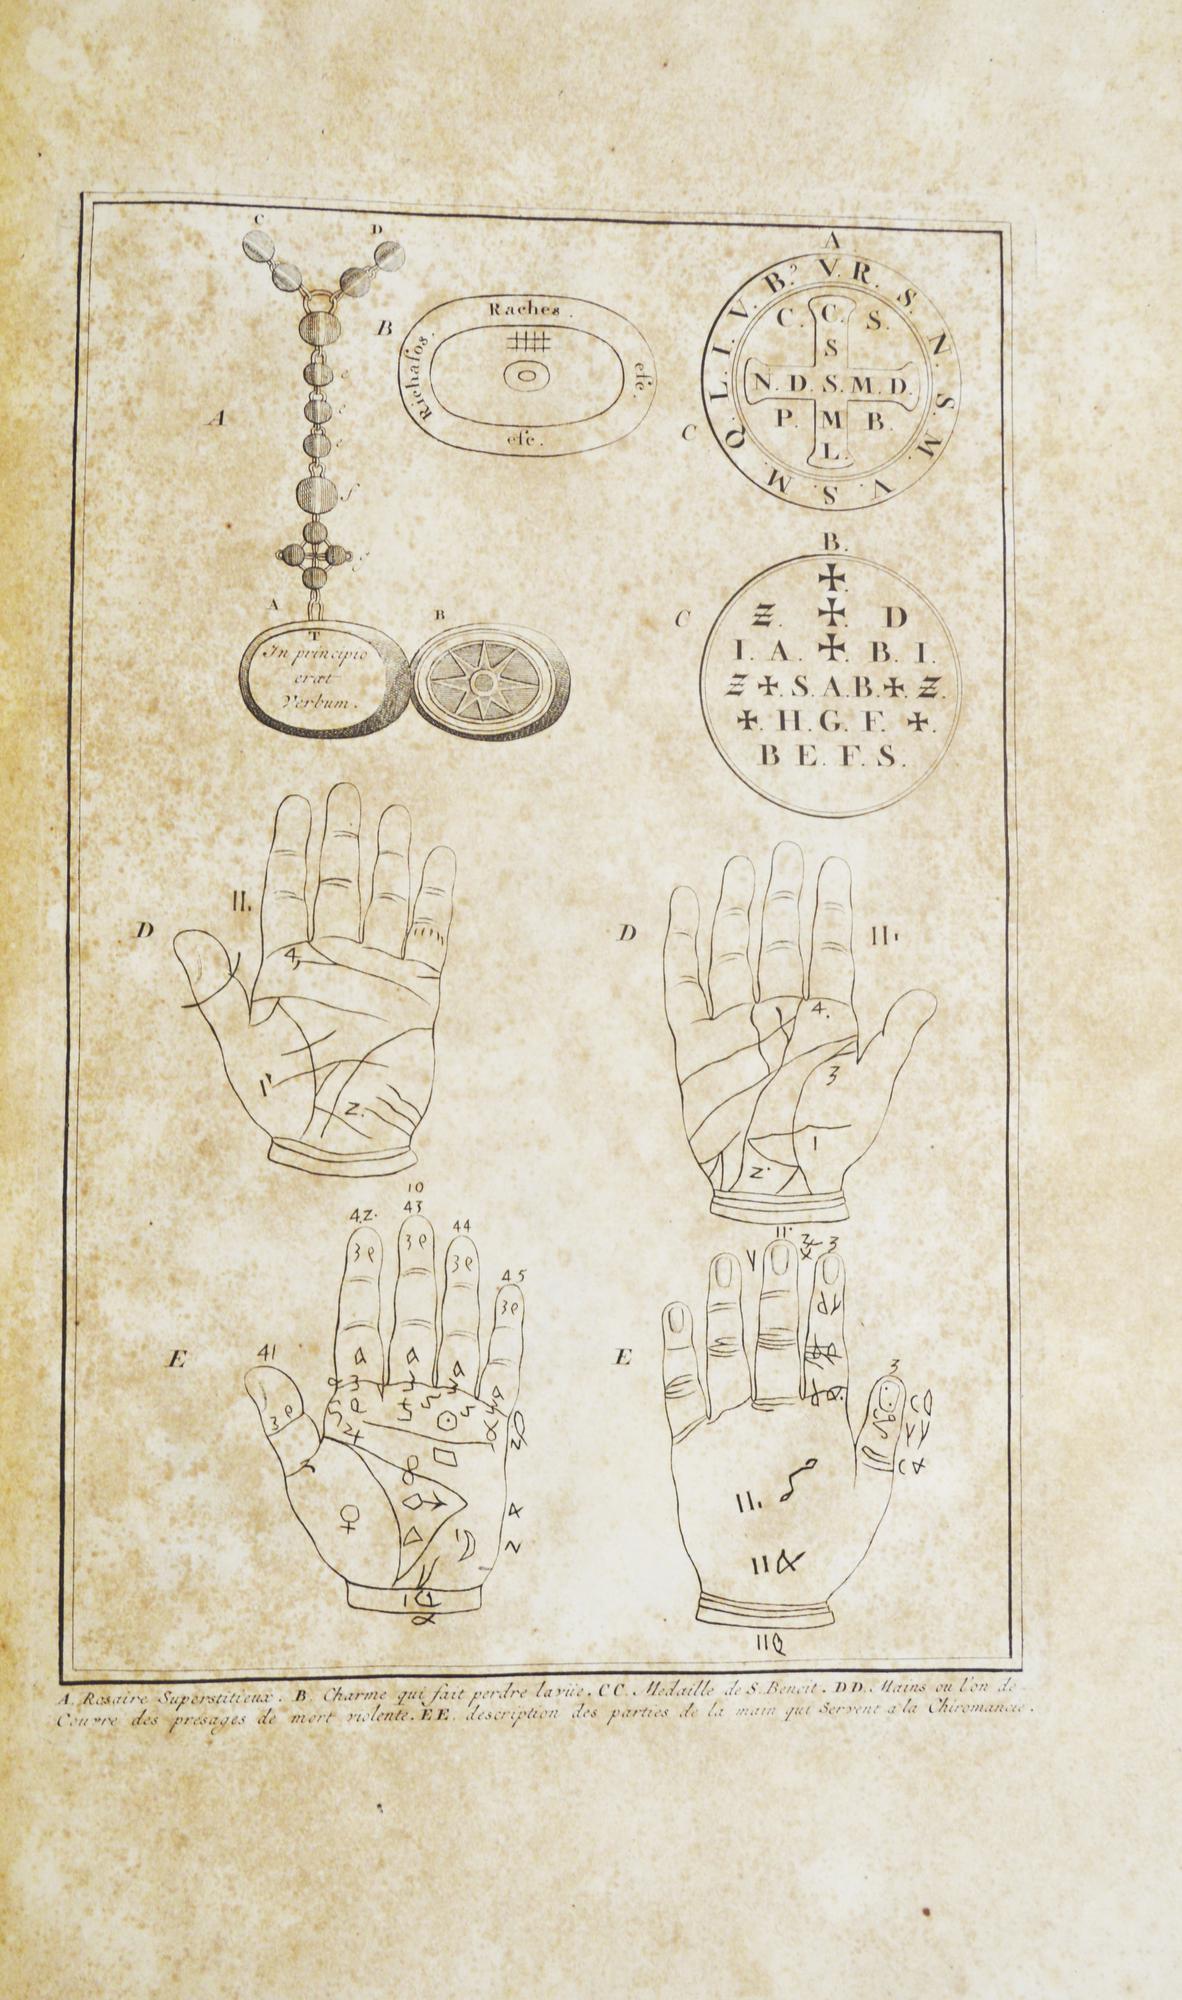 C D
A
B
Raches.
Richasos.
ese.
ese.
A
V. R. S. N. S. M. V. S. M. Q. L. I. V. B.
C. C. S.
S
N. D. S. M. D.
P. M B.
L.
C
e
e
e
f
A B
T
In principio
erat
Verbum.
B.
C
✠.
Z. ✠. D
I. A. ✠. B. I.
Z ✠. S. A. B. ✠. Z.
✠. H. G. F. ✠.
B E. F. S.
D II.
4
1
2.
D II.
4.
3
1
2.
10
42. 43 44 45
41
3e 3e 3e 3e
E
♀
4
2
E
11. 3
3
II.
II
A. Rosaire Superstitieux. B. Charme qui fait perdre la vüe. CC. Medaille de S. Benoit. DD. Mains où l'on de-
Couvre des présages de mort violente. EE. description des parties de la main qui Servent à la Chiromancie.